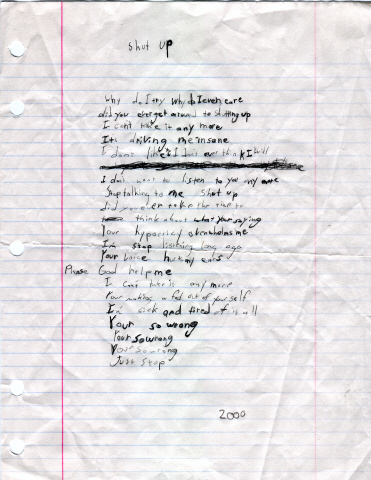 Shut up
Why do I try why do I even care
did you ever get around to shutting up
I cant take it any more
Its driving me insane
I dont like it I dont ever think I will
I don't want to listen to you any more
Stop talking to me shut up
did you ever take the time to
think about what your saying
Your hypocrisy overwhelms me
I'm stop listening long ago
Your voice hurts my ears
Please God help me
I cant take it any more
Your making a fool out of your self
I'm sick and tired of it all
Your so wrong
Your so wrong
Your so wrong
Just stop
2000